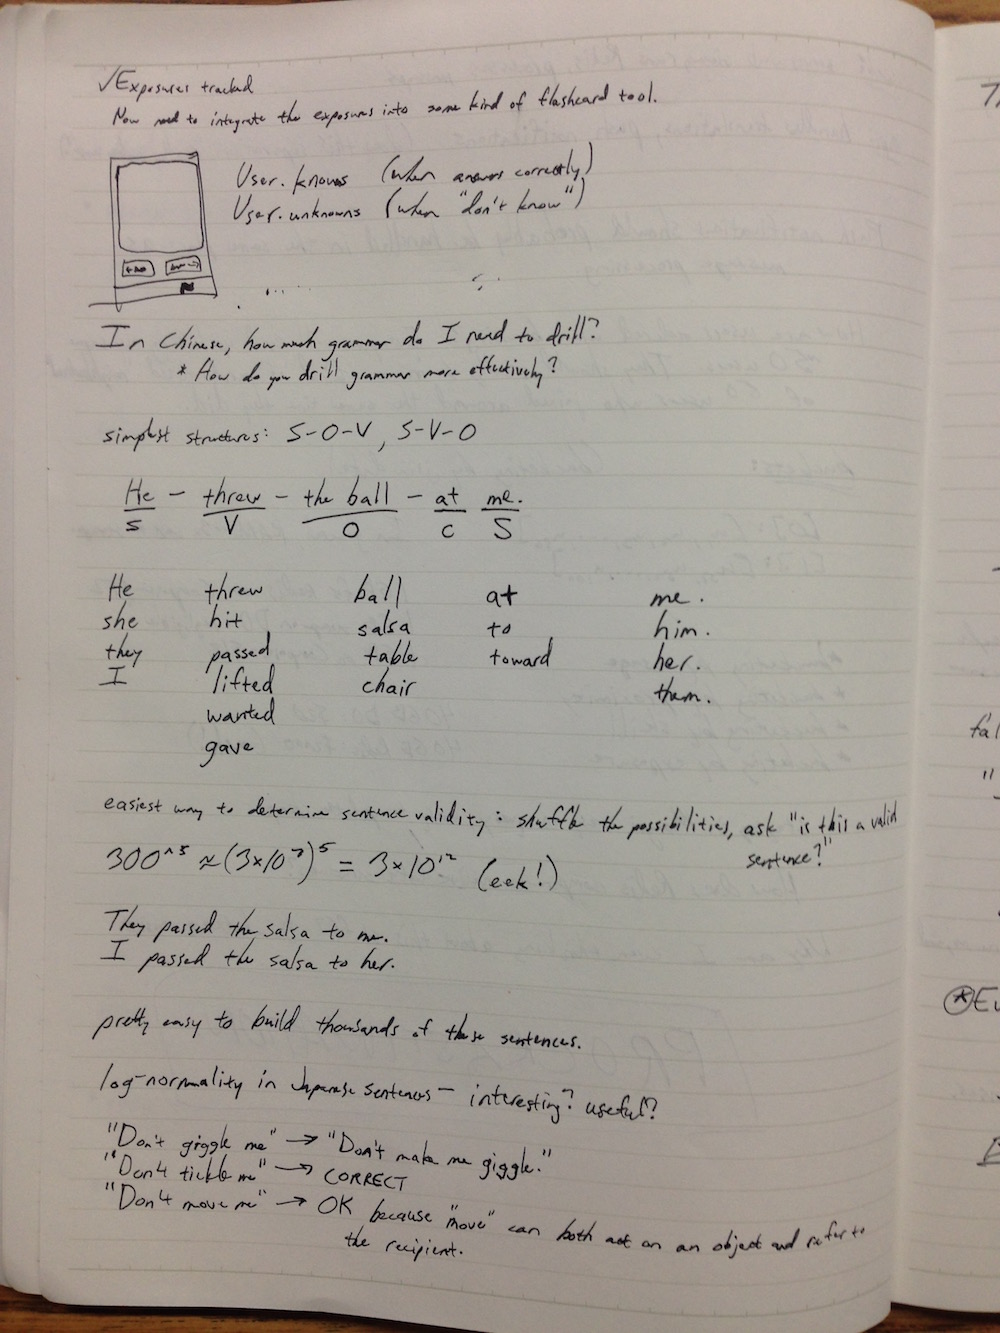 ✓Exposures tracked
Now need to integrate the exposures into some kind of flashcard tool.
User.knows (when answers correctly)
User.unknowns (when "don't know")
In Chinese, how much grammar do I need to drill?
* How do you drill grammar more effectively?
simplest structures: S-O-V, S-V-O
He - threw - the ball - at me.
S V O C S
He threw ball at me.
she hit salsa to him.
they passed table toward her.
I lifted chair them.
wanted
gave
easiest way to determine sentence validity: shuffle the possibilities, ask "is this a valid
sentence?"
300^5 ≈ (3×10^2)^5 = 3×10^12 (eek!)
They passed the salsa to me.
I passed the salsa to her.
pretty easy to build thousands of these sentences.
log-normality in Japanese sentences - interesting? useful?
"Don't giggle me" → "Don't make me giggle."
"Don't tickle me" → CORRECT
"Don't move me" → OK because "move" can both act on an object and refer to
the recipient.